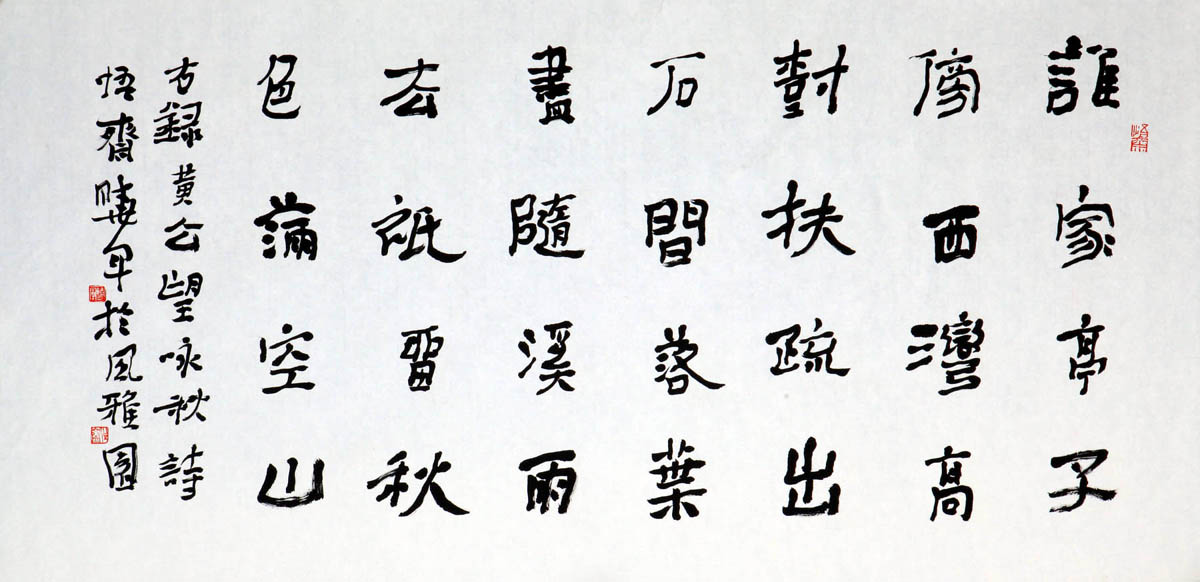 誰家亭子
傍西灣高
對扶疏出
石間落葉
盡隨溪雨
去祇留秋
色滿空山
右錄黃公望咏秋詩
悟齋曉年於風雅園